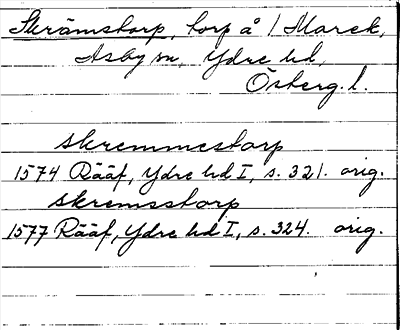 Skrämstorp, torp å / Marek,
Asby sn, Ydre hd,
Österg. l.
skremmestorp
1574 Rääf, Ydre hd I, s. 321. orig.
skremsstorp
1577 Rääf, Ydre hd I, s. 324. orig.